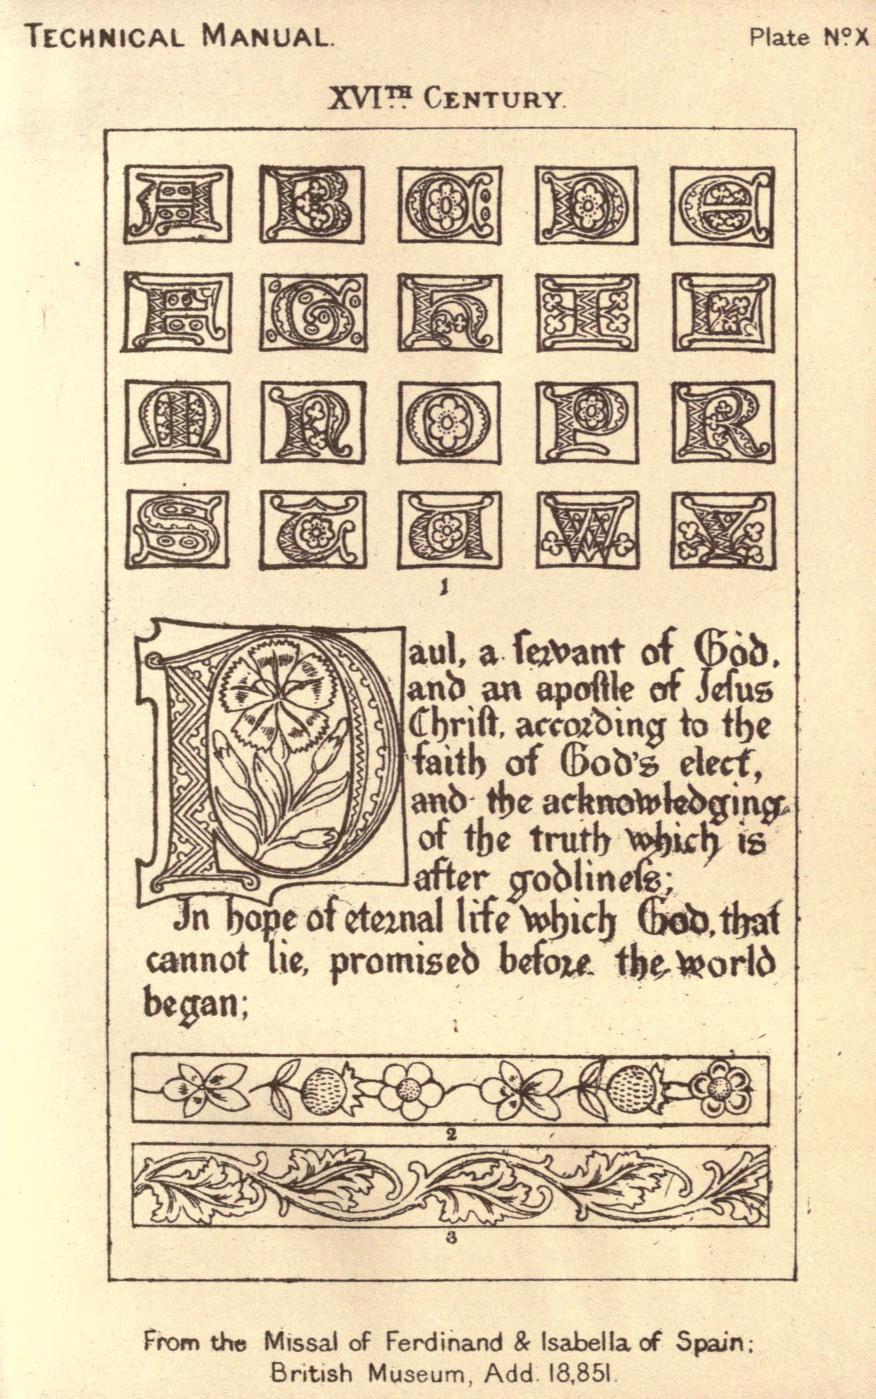 TECHNICAL MANUAL.
Plate Nº X
XVITH CENTURY.
A B C D E
F G H I L
M N O P R
S T U W Y
1
Paul, a servant of God,
and an apostle of Jesus
Christ, according to the
faith of God's elect,
and the acknowledging
of the truth which is
after godliness;
In hope of eternal life which God, that
cannot lie, promised before the world
began;
2
3
From the Missal of Ferdinand & Isabella of Spain:
British Museum, Add. 18,851.